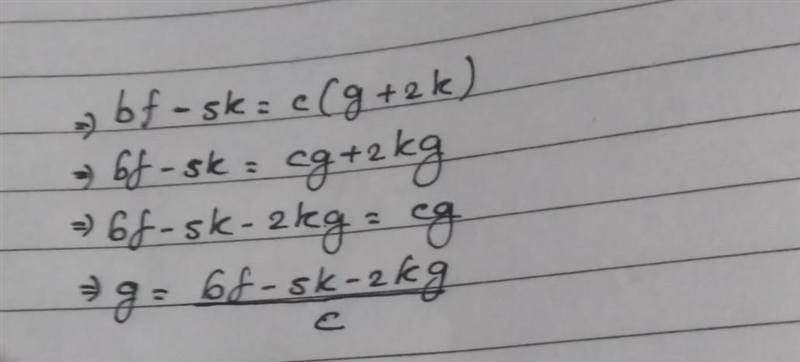 ⇒ 6f - 5k = c(g+2k)
⇒ 6f - 5k = cg+2kg
⇒ 6f - 5k - 2kg = cg
⇒ g = \frac{6f - 5k - 2kg}{c}